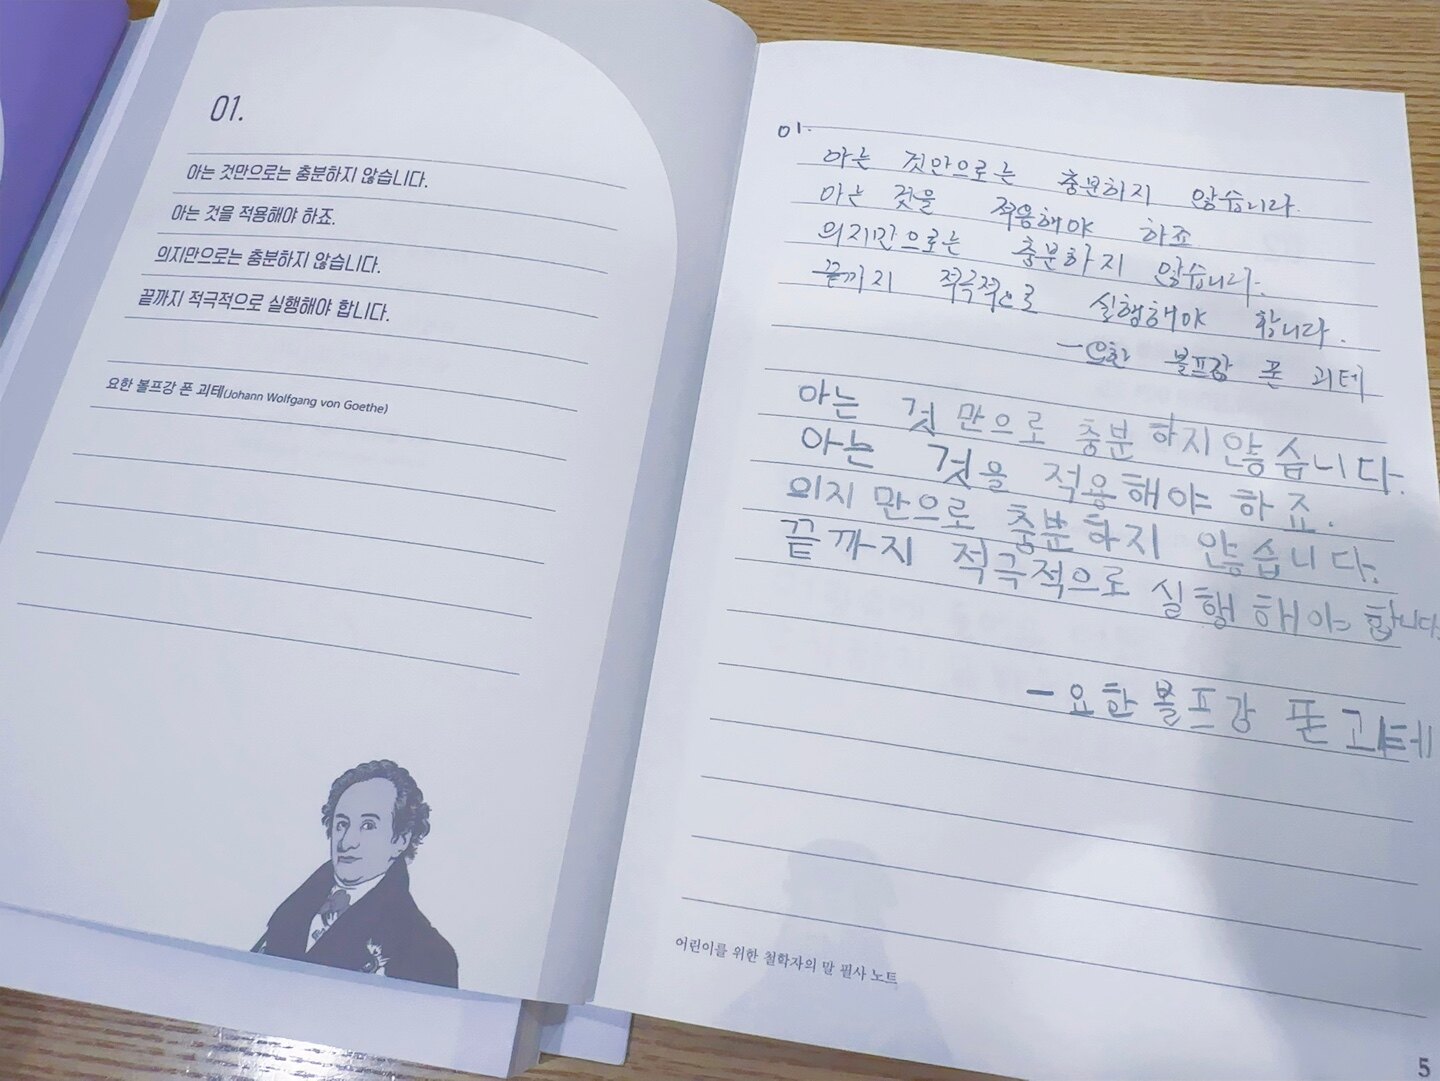 01.
아는 것만으로는 충분하지 않습니다.
아는 것을 적용해야 하죠.
의지만으로는 충분하지 않습니다.
끝까지 적극적으로 실행해야 합니다.
요한 볼프강 폰 괴테(Johann Wolfgang von Goethe)
01.
아는 것만으로는 충분하지 않습니다.
아는 것을 적용해야 하죠
의지만으로는 충분하지 않습니다.
끝까지 적극적으로 실행해야 합니다.
-요한 볼프강 폰 괴테
아는 것 만으로 충분 하지 않습니다.
아는 것을 적용해야 하죠.
의지 만으로 충분하지 않습니다.
끝까지 적극적으로 실행해야 합니다.
-요한 볼프강 폰 괴테
어린이를 위한 철학자의 말 필사 노트
5